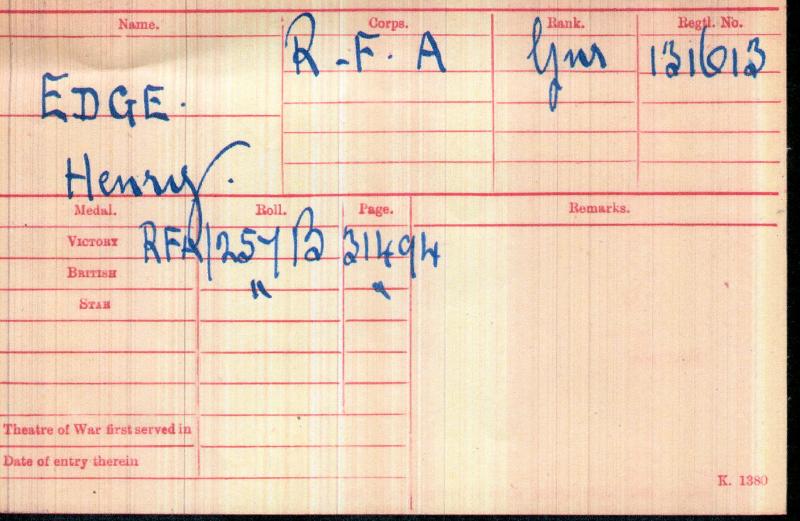 Name. Corps. Rank. Regtl. No.
R.F.A Gnr 131613
EDGE.
Henry.
Medal. Roll. Page. Remarks.
VICTORY RFA/257B 31494
BRITISH " "
STAR
Theatre of War first served in
Date of entry therein
K. 1380